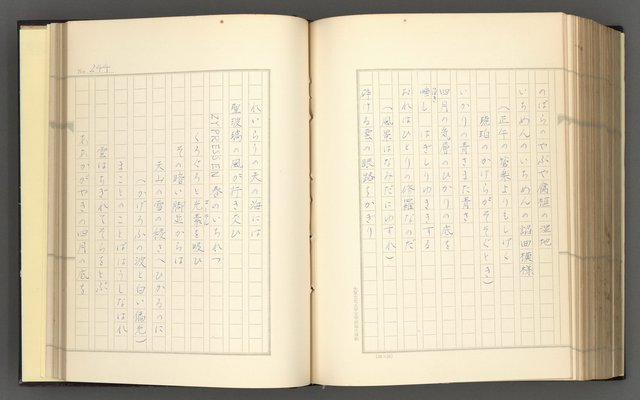 のばらのやぶや腐植の湿地
いちめんのいちめんの諂曲模様
（正午の管楽よりもしげく
琥珀のかけらがそそぐとき）
いかりの青さまた青さ
四月の気層のひかりの底を
唾し はぎしりゆききする
おれはひとりの修羅なのだ
（風景はなみだにゆすれ）
砕ける雲の眼路をかぎり
れいらうの天の海には
聖玻璃の風が行き交ひ
ZYPRESSEN 春のいちれつ
くろぐろと光素を吸ひ
その暗い脚並からは
天山の雪の稜さへひかるのに
（かげろふの波と白い偏光）
まことのことばはうしなはれ
雲はちぎれてそらをとぶ
ああかがやきの四月の底を
No. 244